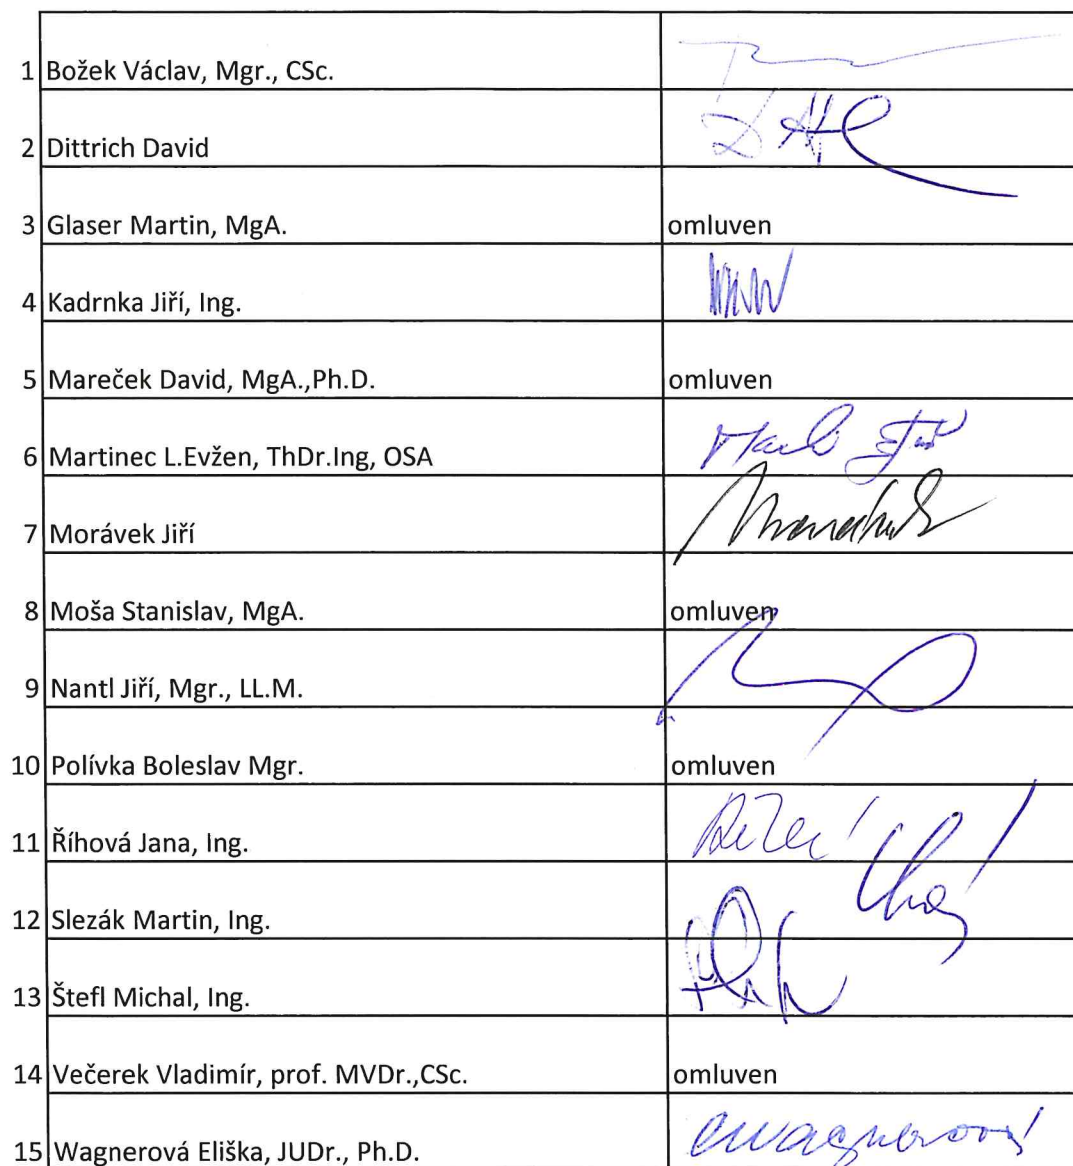 1 Božek Václav, Mgr., CSc.
2 Dittrich David
3 Glaser Martin, MgA. omluven
4 Kadrnka Jiří, Ing.
5 Mareček David, MgA.,Ph.D. omluven
6 Martinec L.Evžen, ThDr.Ing, OSA
7 Morávek Jiří
8 Moša Stanislav, MgA. omluven
9 Nantl Jiří, Mgr., LL.M.
10 Polívka Boleslav Mgr. omluven
11 Říhová Jana, Ing.
12 Slezák Martin, Ing.
13 Štefl Michal, Ing.
14 Večerek Vladimír, prof. MVDr.,CSc. omluven
15 Wagnerová Eliška, JUDr., Ph.D. EWagnerová